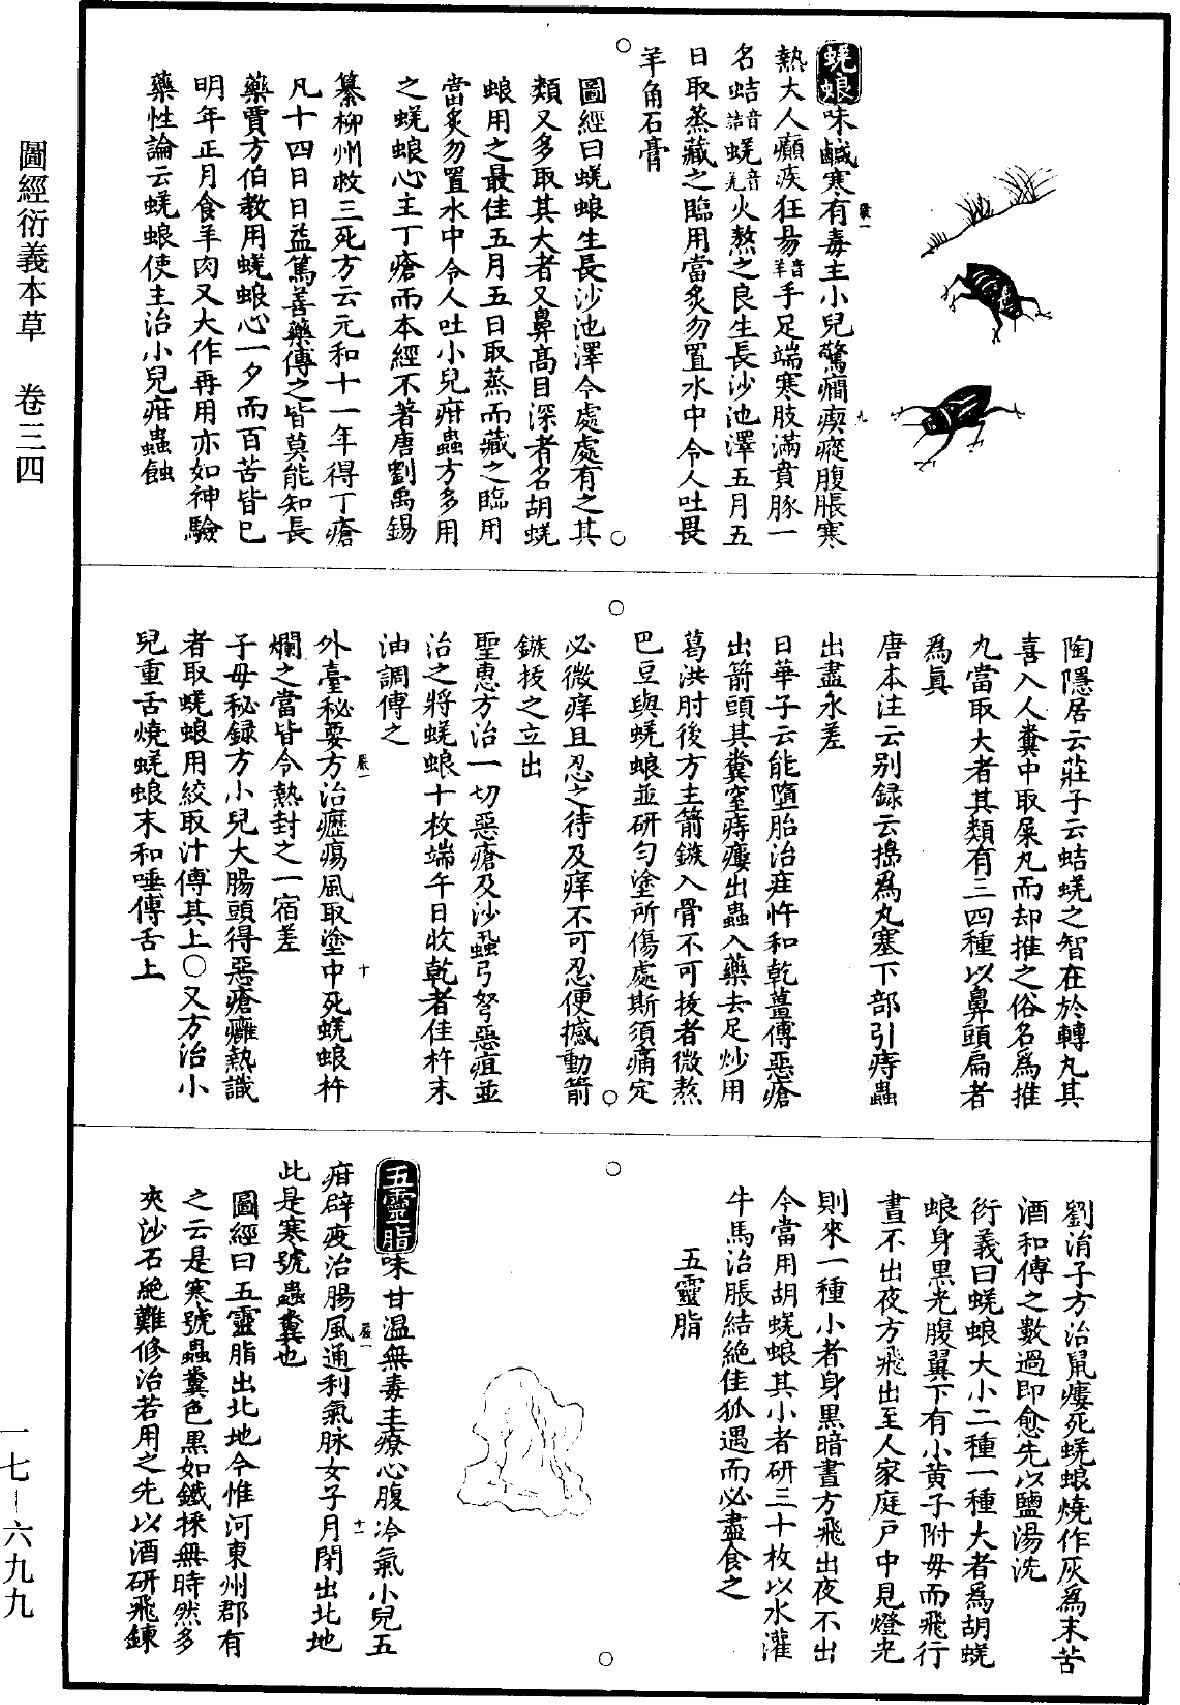 圖經衍義本草　卷三四
蜣蜋味鹹寒有毒主小兒驚癎瘈瘲腹脹寒
熱大人癲疾狂昜音羊手足端寒肢滿賁豚一
名蛣音詰蜣音羌火熬之良生長沙池澤五月五
日取蒸藏之臨用當炙勿置水中令人吐畏
羊角石膏
圖經曰蜣蜋生長沙池澤今處處有之其
類又多取其大者又鼻高目深者名胡蜣
蜋用之最佳五月五日取蒸而藏之臨用
當炙勿置水中令人吐小兒疳蟲方多用
之蜣蜋心主丁瘡而本經不著唐劉禹錫
纂柳州救三死方云元和十一年得丁瘡
凡十四日日益篤善藥傅之皆莫能知長
藥賈方伯教用蜣蜋心一夕而百苦皆已
明年正月食羊肉又大作再用亦如神驗
藥性論云蜣蜋使主治小兒疳蟲蝕
九
陶隱居云莊子云蛣蜣之智在於轉丸其
喜入人糞中取屎丸而却推之俗名爲推
丸當取大者其類有三四種以鼻頭扁者
爲真
唐本注云别録云搗爲丸塞下部引痔蟲
出盡永差
日華子云能墮胎治疰忤和乾薑傅惡瘡
出箭頭其糞窒痔瘻出蟲入藥去足炒用
葛洪肘後方主箭鏃入骨不可拔者微熬
巴豆與蜣蜋並研勻塗所傷處斯須痛定
必微痒且忍之待及痒不可忍便撼動箭
鏃拔之立出
聖惠方治一切惡瘡及沙蝨弓弩惡疽並
治之將蜣蜋十枚端午日收乾者佳杵末
油調傅之
外臺秘要方治癧瘍風取塗中死蜣蜋杵
爛之當皆令熱封之一宿差
子母秘録方小兒大腸頭得惡瘡癰熱識
者取蜣蜋用絞取汁傅其上○又方治小
兒重舌燒蜣蜋末和唾傅舌上
十
劉涓子方治鼠瘻死蜣蜋燒作灰爲末苦
酒和傅之數過即愈先以鹽湯洗
衍義曰蜣蜋大小二種一種大者爲胡蜣
蜋身黑光腹翼下有小黄子附母而飛行
晝不出夜方飛出至人家庭户中見燈光
則來一種小者身黑暗晝方飛出夜不出
今當用胡蜣蜋其小者研三十枚以水灌
牛馬治脹結絶佳狐遇而必盡食之
五靈脂
五靈脂味甘温無毒主療心腹冷氣小兒五
疳辟疫治腸風通利氣脉女子月閉出北地
此是寒號蟲糞也
圖經曰五靈脂出北地今惟河東州郡有
之云是寒號蟲糞色黑如鐵採無時然多
夾沙石絶難修治若用之先以酒研飛鍊
十一
一七-六九九